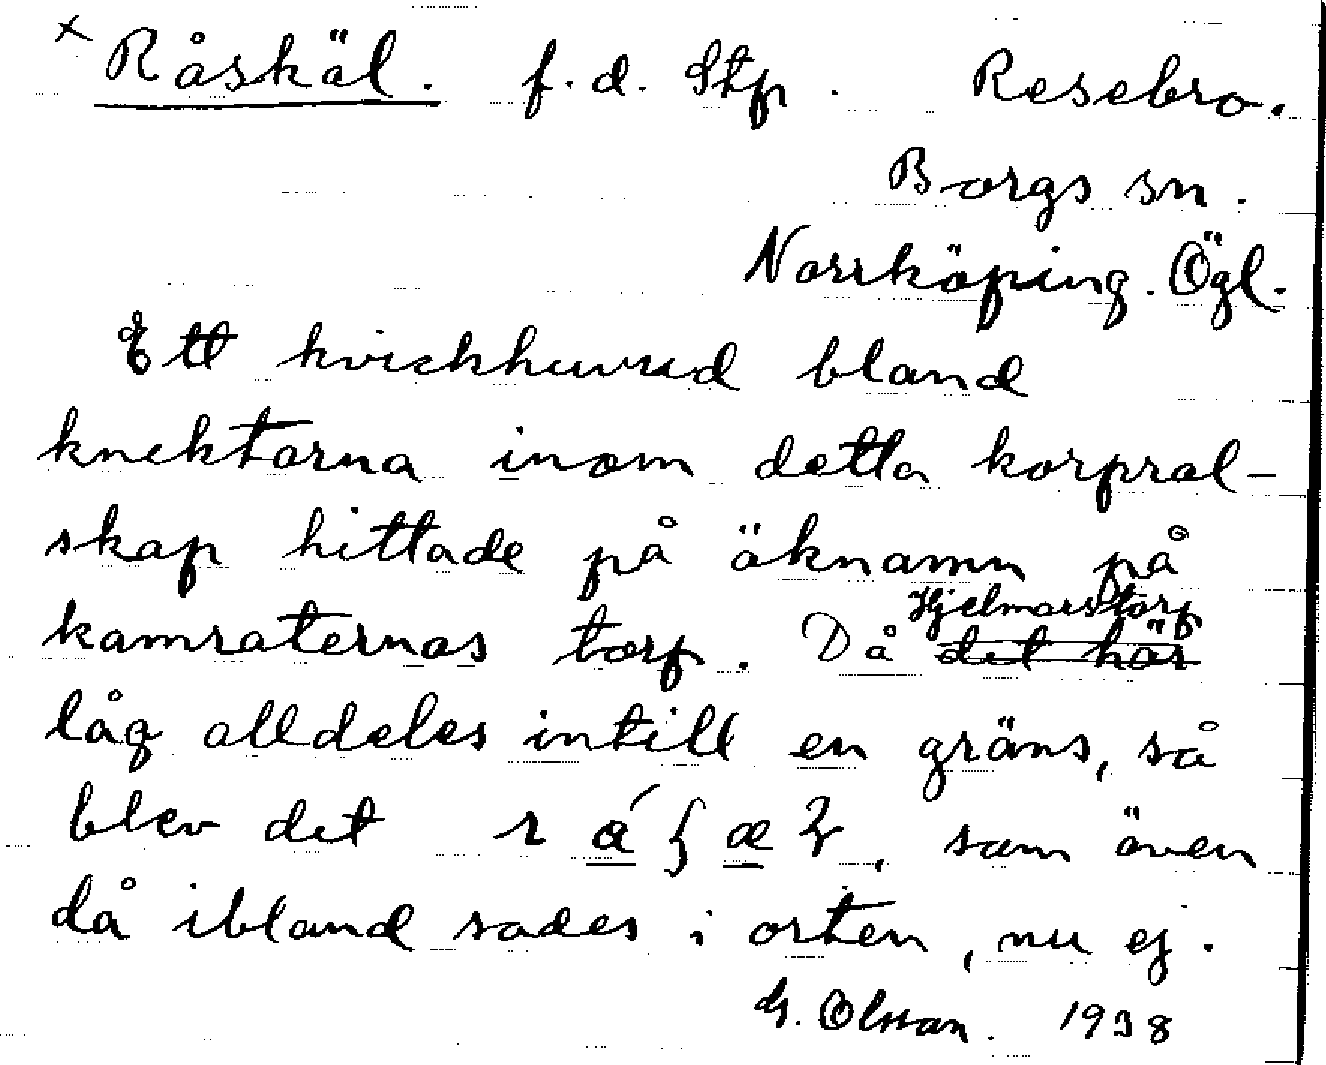 × Råskäl. f.d. Stp. Resebro.
Borgs sn.
Norrköping. Ögl.
Ett kvickhuvud bland
knektarna inom detta korpral-
skap hittade på öknamn på
kamraternas torp. Då det här Hjelmarstorp
låg alldeles intill en gräns, så
blev det
, som även
då ibland sades i orten, nu ej.
G. Olsson. 1938